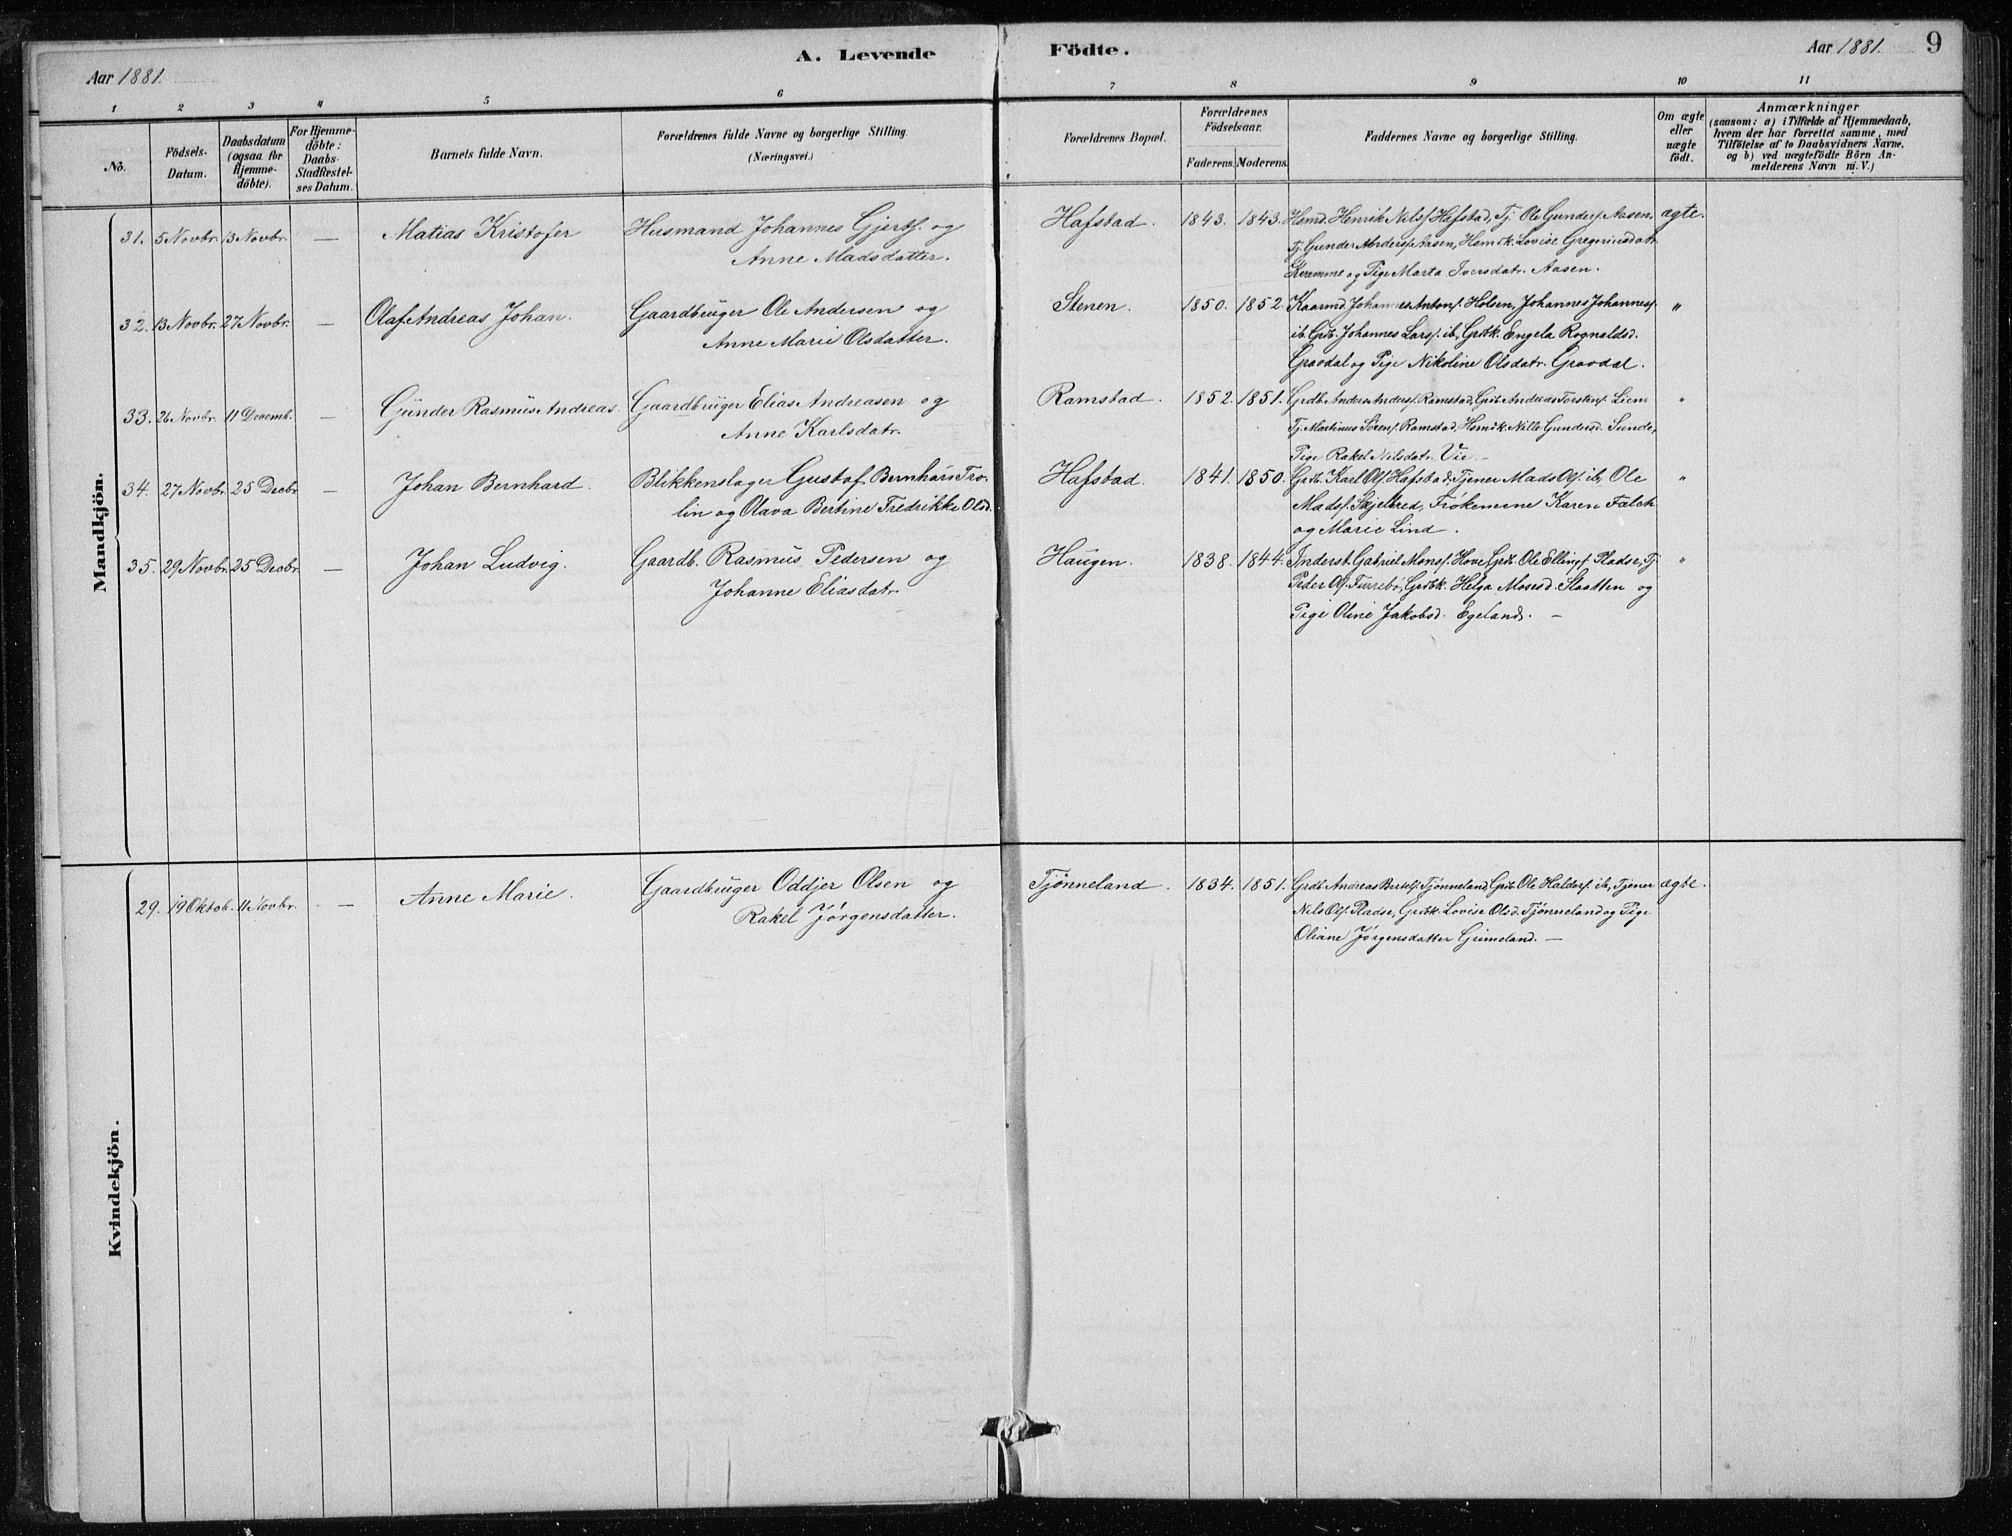 Aar 1881.
A. Levende Födte.
Aar 1881. 9
1 2 3 4 5 6 7 8 9 10 11
No.
Födsels-
Datum.
Daabsdatum
(ogsaa for
Hjemme-
döbte).
For Hjemme-
döbte:
Daabs-
Stadfæstel-
ses Datum.
Barnets fulde Navn.
Forældrenes fulde Navne og borgerlige Stilling.
(Næringsvei.)
Forældrenes Bopæl.
Forældrenes
Födselsaar.
Faderens. Moderens.
Faddernes Navne og borgerlige Stilling.
Om ægte
eller
uægte
födt.
Anmærkninger
(saasom: a) i Tilfælde af Hjemmedaab,
hvem der har forrettet samme, med
Tilföielse af to Daabsvidners Navne,
og b) ved uægtefödte Börn An-
melderens Navn m. V.)
Mandkjön.
31. 5 Novbr. 13 Novbr. — Matias Kristofer Husmand Johannes Gjerts. og
Anne Madsdatter.
Hafstad. 1843. 1843. Hsmd. Henrik Nilss. Hafstad, Tj. Ole Gunders. Aasen, ægte.
Tj. Gunder Anderss. Aasen, Hsmdk. Lovise Gregoriusdatr.
Kvamme og Pige Marta Iversdatr. Aasen.
32. 13 Novbr. 27 Novbr. — Olaf Andreas Johan. Gaardbruger Ole Andersen og
Anne Marie Olsdatter.
Stenen. 1850. 1852. Kaarmd. Johannes Antons. Holsen, Johannes Johanness. "
ib, Grdb. Johannes Larss. ib, Grdbk. Engela Rognaldsd.
Gravdal og Pige Nikoline Olsdatr. Gravdal.
33. 26 Novbr. 11 Decemb. — Gunder Rasmus Andreas. Gaardbruger Elias Andreasen og
Anne Karlsdatr.
Ramstad. 1852. 1851. Grdb. Anders Anderss. Ramstad, Grdb. Andreas Torstens. Lien "
Tj. Martinus Sørens. Ramstad, Hsmdk. Nille Gundersd. Sunde,
Pige Rakel Nilsdatr. Vie —
34. 27 Novbr. 25 Decbr. — Johan Bernhard. Blikkenslager Gustof Bernhars Tro-
lin og Olava Bertine Fredrikke Olsd.
Hafstad. 1841. 1850. Grdb. Karl Ols. Hafstad, Tjener Mads Ols. ib, Ole "
Madss. Skjelbred, Frøknerne Karen Falch
og Marie Lind.
35. 29 Novbr. 25 Decbr. — Johan Ludvig. Gaardb. Rasmus Pedersen og
Johanne Eliasdatr.
Haugen. 1838. 1844. Inderst. Gabriel Mons. Hove, Grdb. Ole Ellings. Pladse, Tj. "
Peder Ols. Furrebö, Grdbk. Helga Mosesd. Slaatten og
Pige Oline Jakobsd. Egeland. —
Kvindekjön.
29. 19 Oktob. 11 Novbr. — Anne Marie. Gaardbruger Oddjer Olsen og
Rakel Jørgensdatter.
Tjønneland. 1834. 1851. Grdb. Andreas Bertels. Tjønneland, Grdb. Ole Haldors. ib, Tjener ægte.
Nils Ols. Pladse, Grdbk. Lovise Olsd. Tjønneland og Pige
Oliane Jørgensdatter Grimeland. —